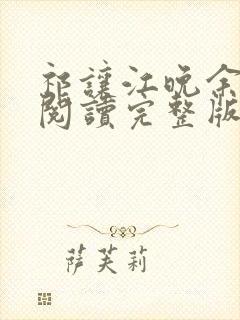 祁讓江晚余
閱讀完整版
萨芙莉